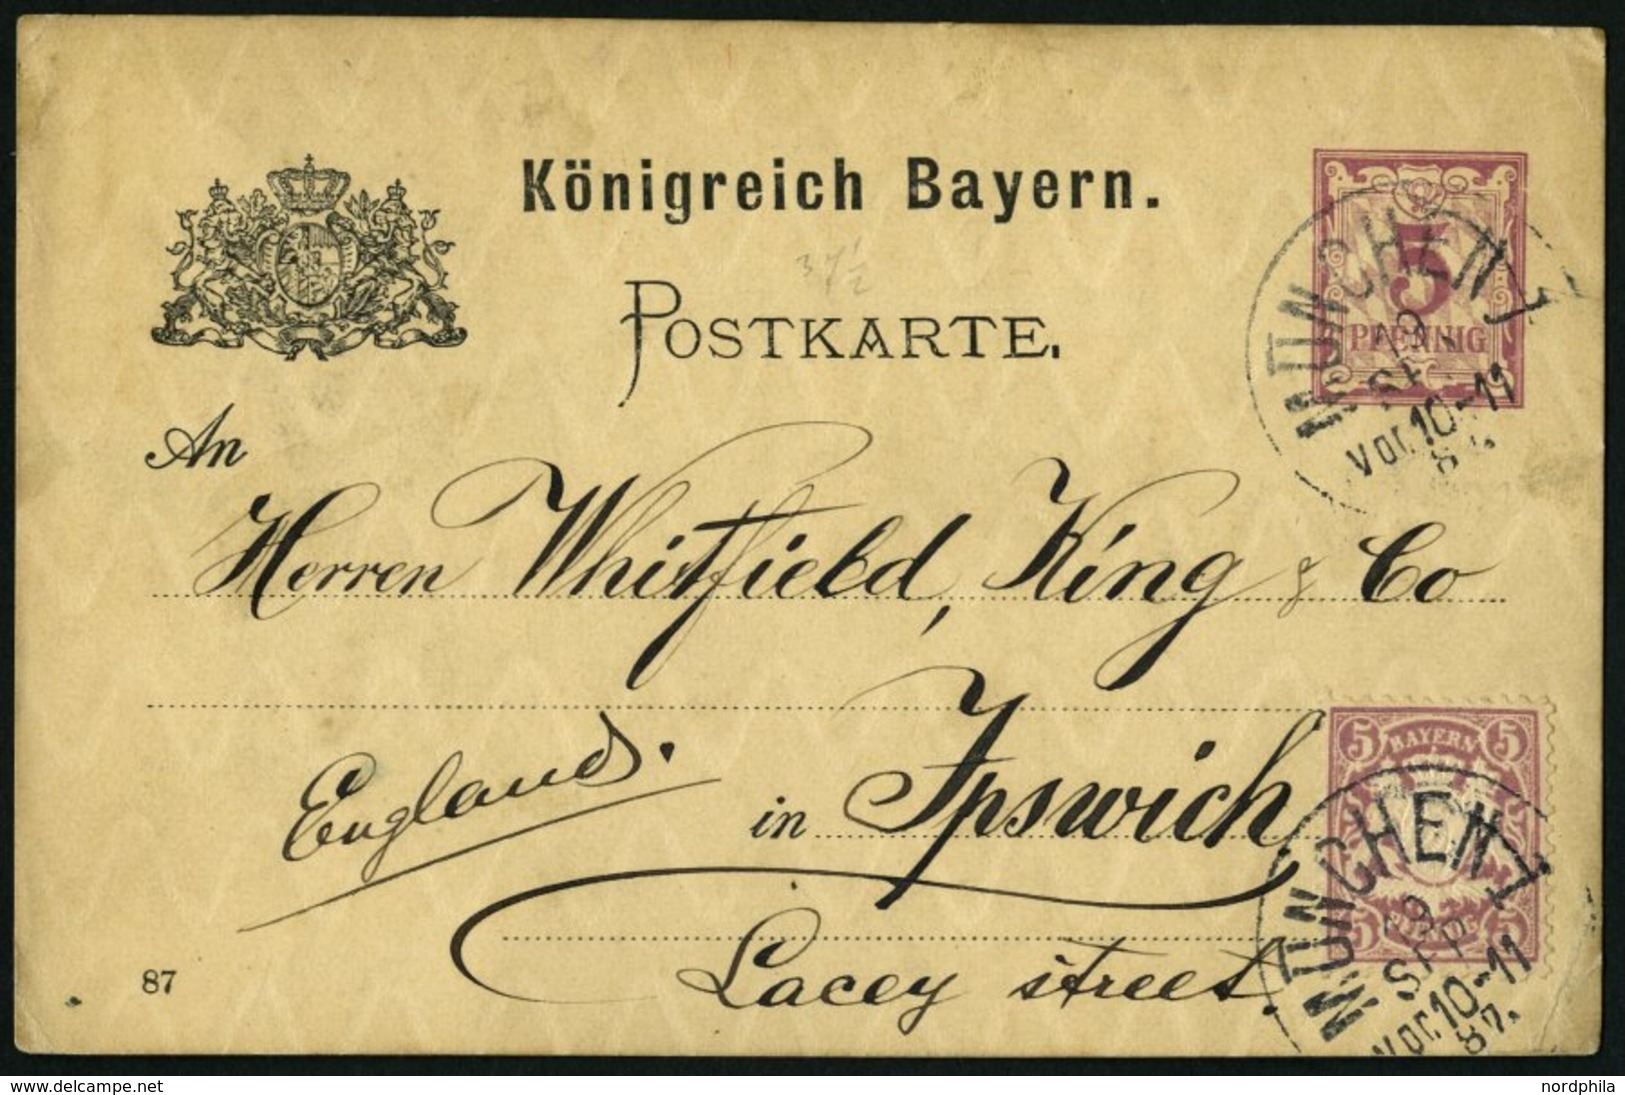 Königreich Bayern.
3 1/2
POSTKARTE.
5
PFENNIG
MÜNCHEN I
SEP
Vor. 10-11
87.
An
Herren Whitfield, King & Co
in Ipswich,
England.
Lacey street.
5 BAYERN 5
5 5
MÜNCHEN I
9
SEP
Vor. 10-11
87.
87
©delcampe.net
nordphila